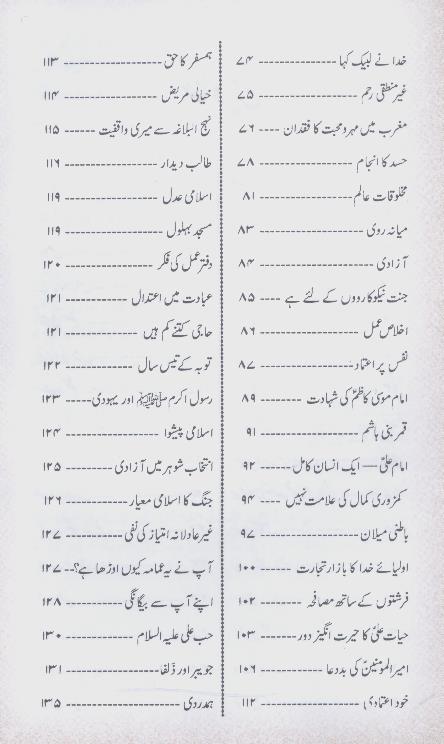 خدا نے لبیک کہا ---------------- ۷۴
غیر منطقی رحم ------------------ ۷۵
مغرب میں مہر و محبت کا فقدان ---- ۷۶
حسد کا انجام ------------------ ۷۸
مخلوقات عالم ------------------ ۸۱
میانہ روی -------------------- ۸۳
آزادی ---------------------- ۸۴
جنت نیکوکاروں کے لئے ہے ---- ۸۵
اخلاص عمل -------------------- ۸۶
نفس پر اعتماد ------------------ ۸۷
امام موسیٰ کاظمؑ کی شہادت -------- ۸۹
قمر بنی ہاشم ------------------ ۹۱
امام علیؑ — ایک انسان کامل ------ ۹۲
کمزوری کمال کی علامت نہیں ---- ۹۴
باطنی میلان ------------------ ۹۷
اولیائے خدا کا بازار تجارت ------ ۱۰۰
فرشتوں کے ساتھ مصافحہ -------- ۱۰۲
حیات علیؑ کا حیرت انگیز دور ------- ۱۰۳
امیر المومنینؑ کی بددعا ---------- ۱۰۶
خود اعتمادی ------------------ ۱۱۲
ہمسفر کا حق ------------------ ۱۱۳
خیالی مریض ------------------ ۱۱۴
نہج البلاغہ سے میری واقفیت ------ ۱۱۵
طالب دیدار ------------------ ۱۱۶
اسلامی عدل ------------------ ۱۱۹
مسجد بہلول ------------------ ۱۱۹
دفتر عمل کی فکر ---------------- ۱۲۰
عبادت میں اعتدال ------------ ۱۲۱
حاجی کتنے کم ہیں -------------- ۱۲۱
توبہ کے تیس سال ------------ ۱۲۲
رسول اکرم ﷺ اور یہودی ----- ۱۲۳
اسلامی پیشوا ------------------ ۱۲۴
انتخاب شوہر میں آزادی -------- ۱۲۵
جنگ کا اسلامی معیار ---------- ۱۲۶
غیر عادلانہ امتیاز کی نفی ---------- ۱۲۷
آپ نے یہ عمامہ کیوں اوڑھا ہے؟ -- ۱۲۷
اپنے آپ سے بیگانگی ---------- ۱۲۸
حب علی علیہ السلام ------------ ۱۳۰
جویبر اور ذلفا ------------------ ۱۳۱
ہمدردی -------------------- ۱۳۵